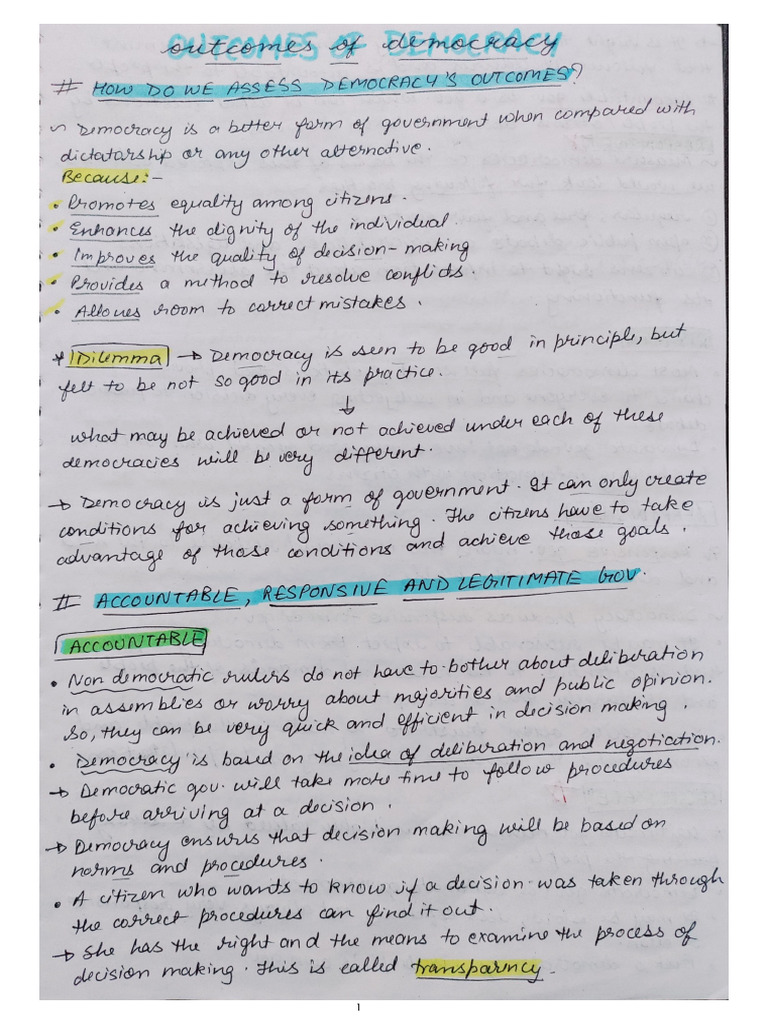 outcomes of democracy
# HOW DO WE ASSESS DEMOCRACY'S OUTCOMES?
~ Democracy is a better form of government when compared with
dictatarship or any other alternative.
Because:-
• Promotes equality among citizens.
• Enhances the dignity of the individual.
• Improves the quality of decision-making
• Provides a method to resolve conflicts.
• Allows room to correct mistakes.
* Dilemma → Democracy is seen to be good in principle, but
felt to be not so good in its practice.
↓
what may be achieved or not achieved under each of these
democracies will be very different.
→ Democracy is just a form of government. It can only create
conditions for achieving something. The citizens have to take
advantage of those conditions and achieve those goals.
# ACCOUNTABLE, RESPONSIVE AND LEGITIMATE GOV.
ACCOUNTABLE
• Non democratic rulers do not have to bother about deliberation
in assemblies or worry about majorities and public opinion.
So, they can be very quick and efficient in decision making.
• Democracy is based on the idea of deliberation and negotiation.
→ Democratic gov. will take more time to follow procedures
before arriving at a decision.
→ Democracy ensures that decision making will be based on
norms and procedures.
• A citizen who wants to know if a decision was taken through
the correct procedures can find it out.
→ She has the right and the means to examine the process of
decision making. This is called transparency.
1